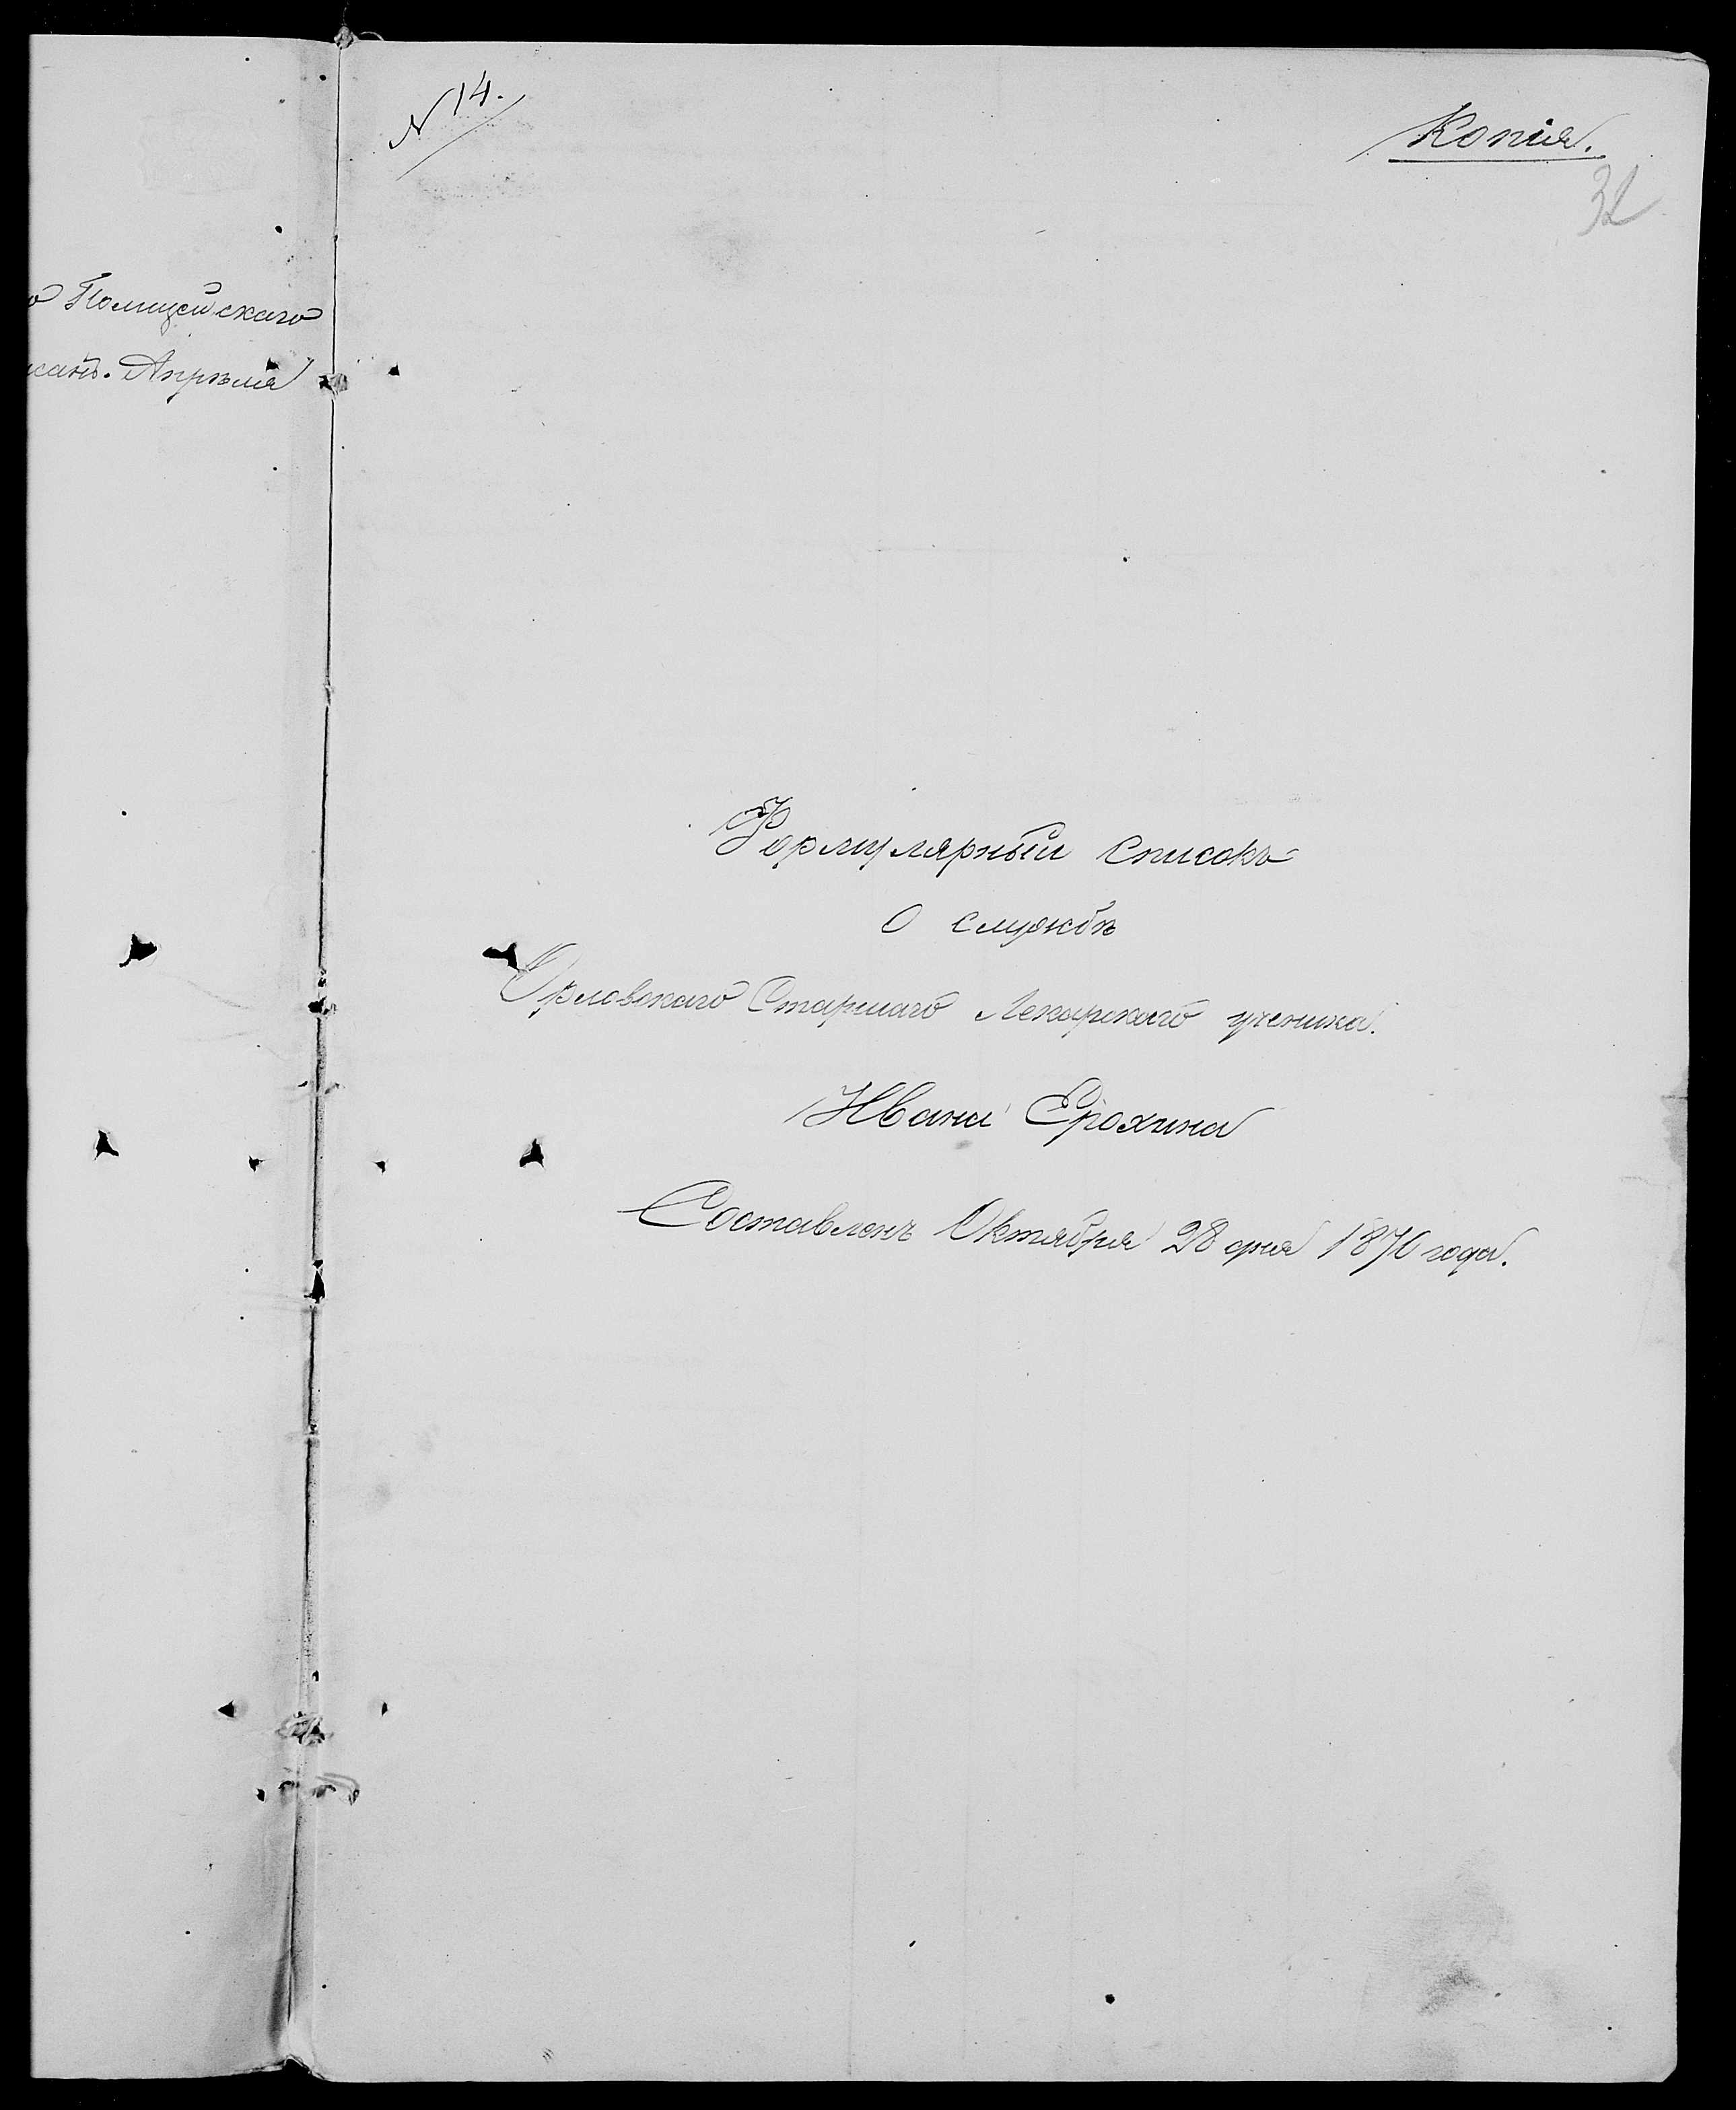 о Полицейскаго
Апрѣля
N 14.
Копія.
32
Формулярный списокъ
О службѣ
Орловскаго Старшаго Лекарскаго ученика.
Ивана Ерохина
Составленъ Октября 28 дня 1870 года.